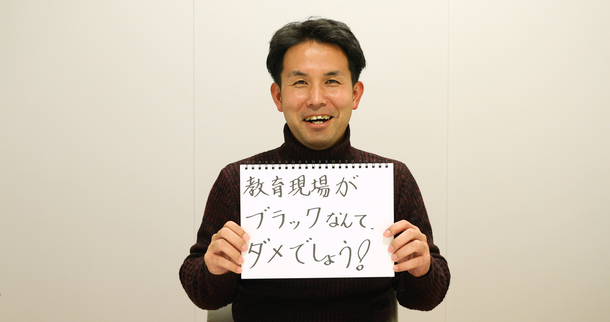 教育現場が
ブラックなんて、
ダメでしょう!